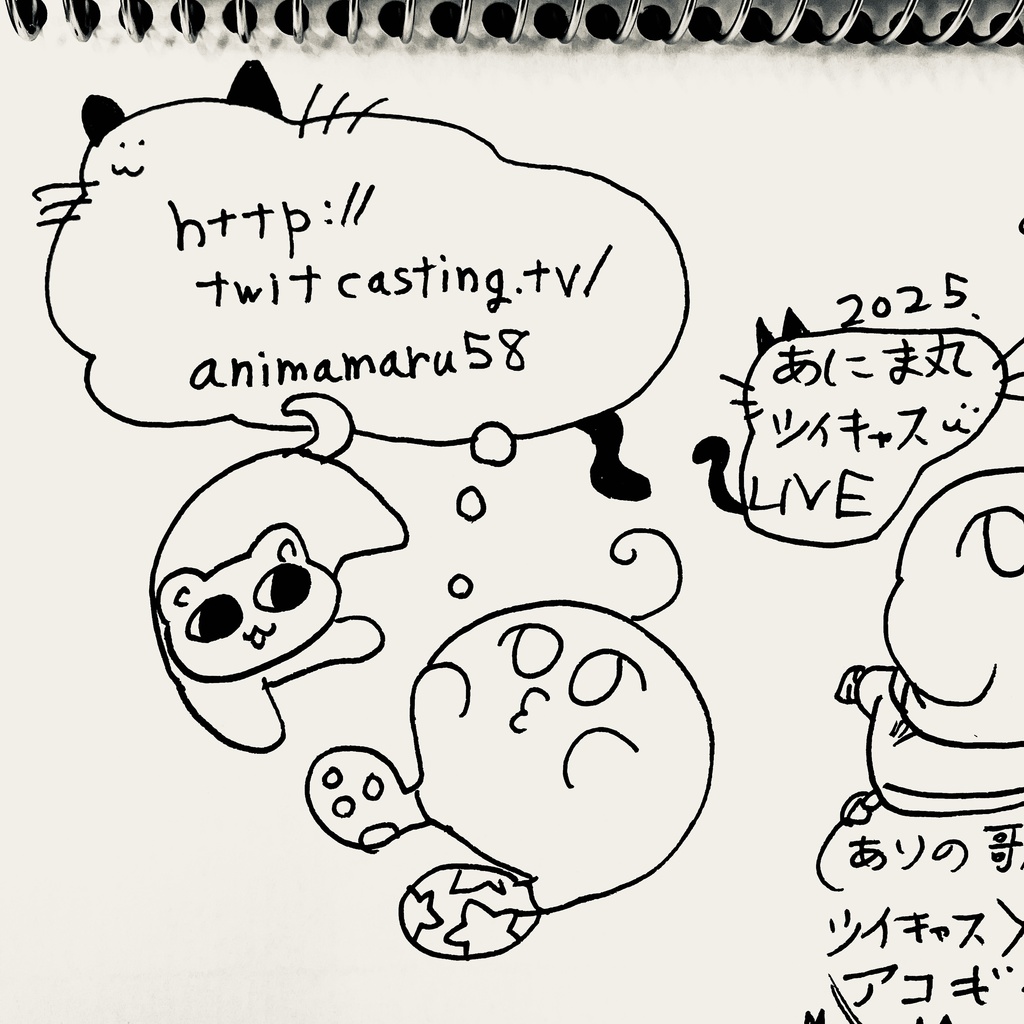 http://
twitcasting.tv/
animamaru58
2025.
あにま丸
ツイキャス
LIVE
ありの歌
ツイキャス
アコギ